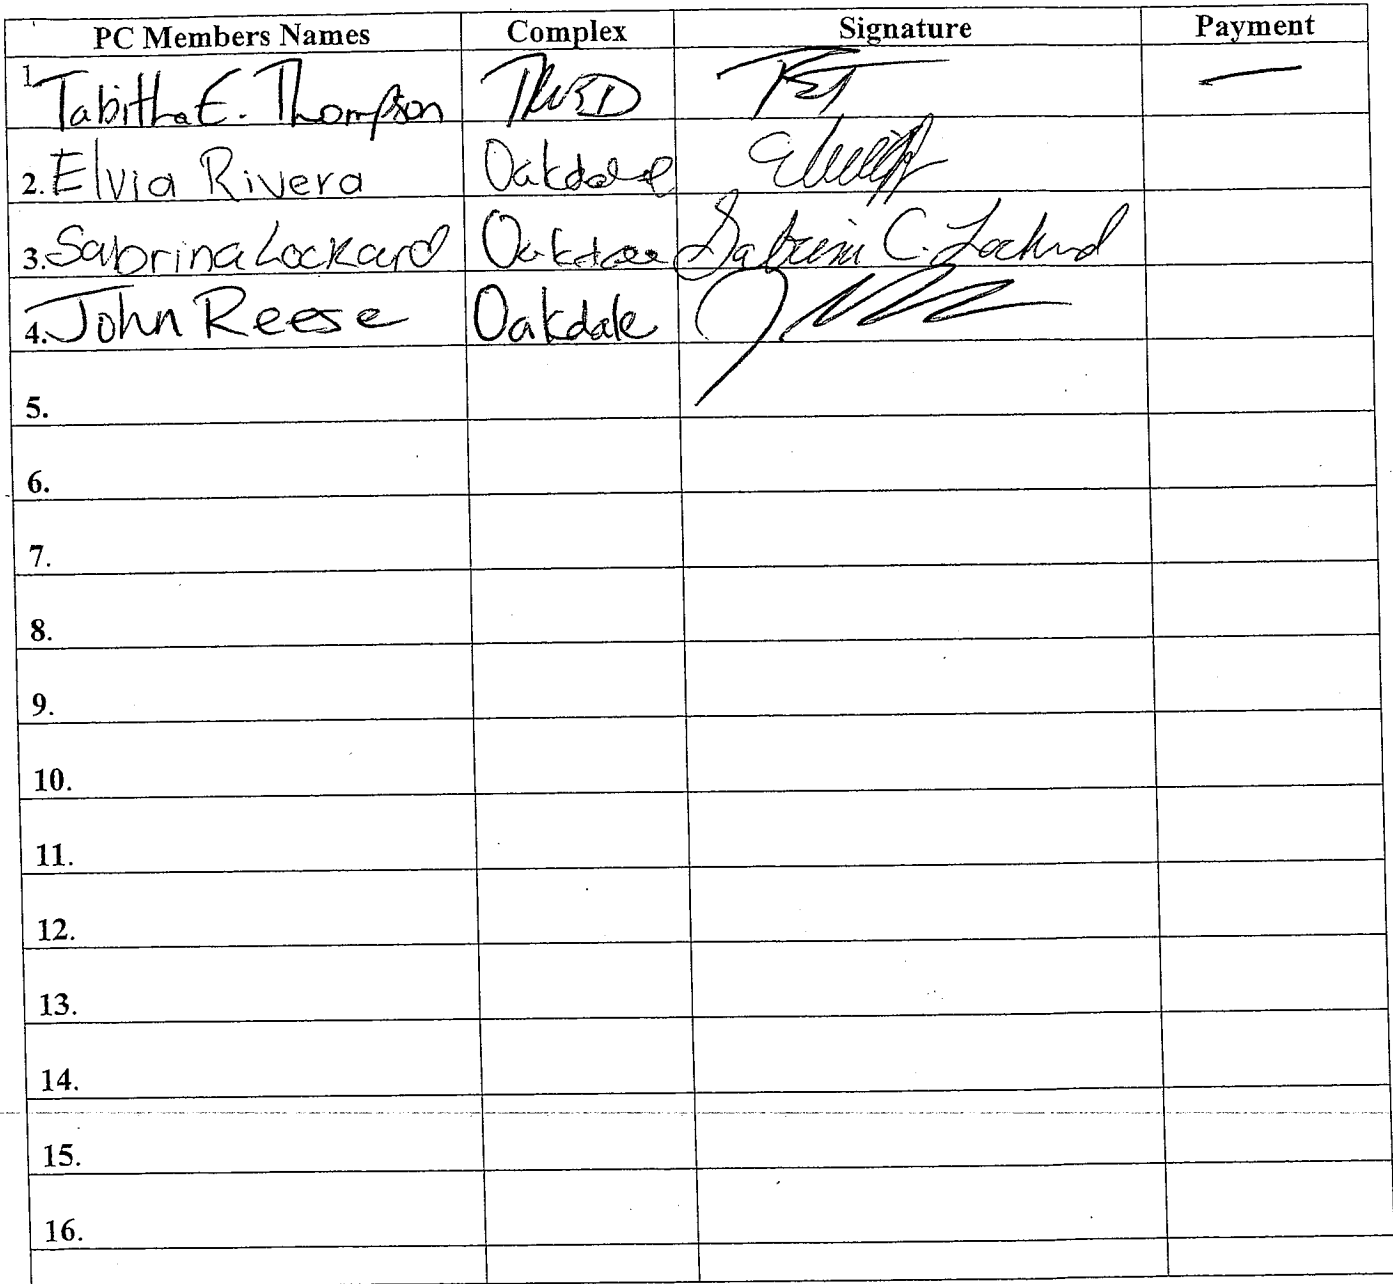 PC Members Names Complex Signature Payment
1. Tabitha E. Thompson TET —
2. Elvia Rivera Oakdale
3. Sabrina Lockard Oakdale Sabrina C. Lockard
4. John Reese Oakdale
5.
6.
7.
8.
9.
10.
11.
12.
13.
14.
15.
16.